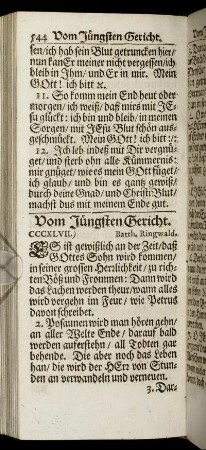 544 Vom Jüngsten Gericht.
sen/ich hab sein Blut getruncken hier/
nun kan Er meiner nicht vergessen/ich
bleib in Jhm/ und Er in mir. Mein
GOtt! ich bitt ꝛc.
11. So komm mein End heut oder
morgen/ ich weiß/ daß mirs mit JE-
su glückt: ich bin und bleib/ in meinen
Sorgen/ mit JEsu Blut schön aus-
geschmückt. Mein GOtt! ich bitt ꝛc.
12. Jch leb indeß mit Dir vergnü-
get/ und sterb ohn alle Kümmernis:
mir gnüget/ wie es mein GOtt füget/
ich glaub/ und bin es gantz gewiß/
durch deine Gnad/ und Christi Blut/
machst dus mit meinem Ende gut.
Vom Jüngsten Gericht.
CCCXLVII. Barth. Ringwald.
ES ist gewißlich an der Zeit/ daß
GOttes Sohn wird kommen/
in seiner grossen Herrlichkeit/ zu rich-
ten Böß und Frommen: Dann wird
das Lachen werden theur/ wann alles
wird vergehn im Feur/ wie Petrus
davon schreibet.
2. Posaunen wird man hören gehn/
an aller Welte Ende/ darauf bald
werden auferstehn/ all Todten gar
behende. Die aber noch das Leben
han/ die wird der HErr von Stun-
den an verwandeln und verneuen.
3. Dar-